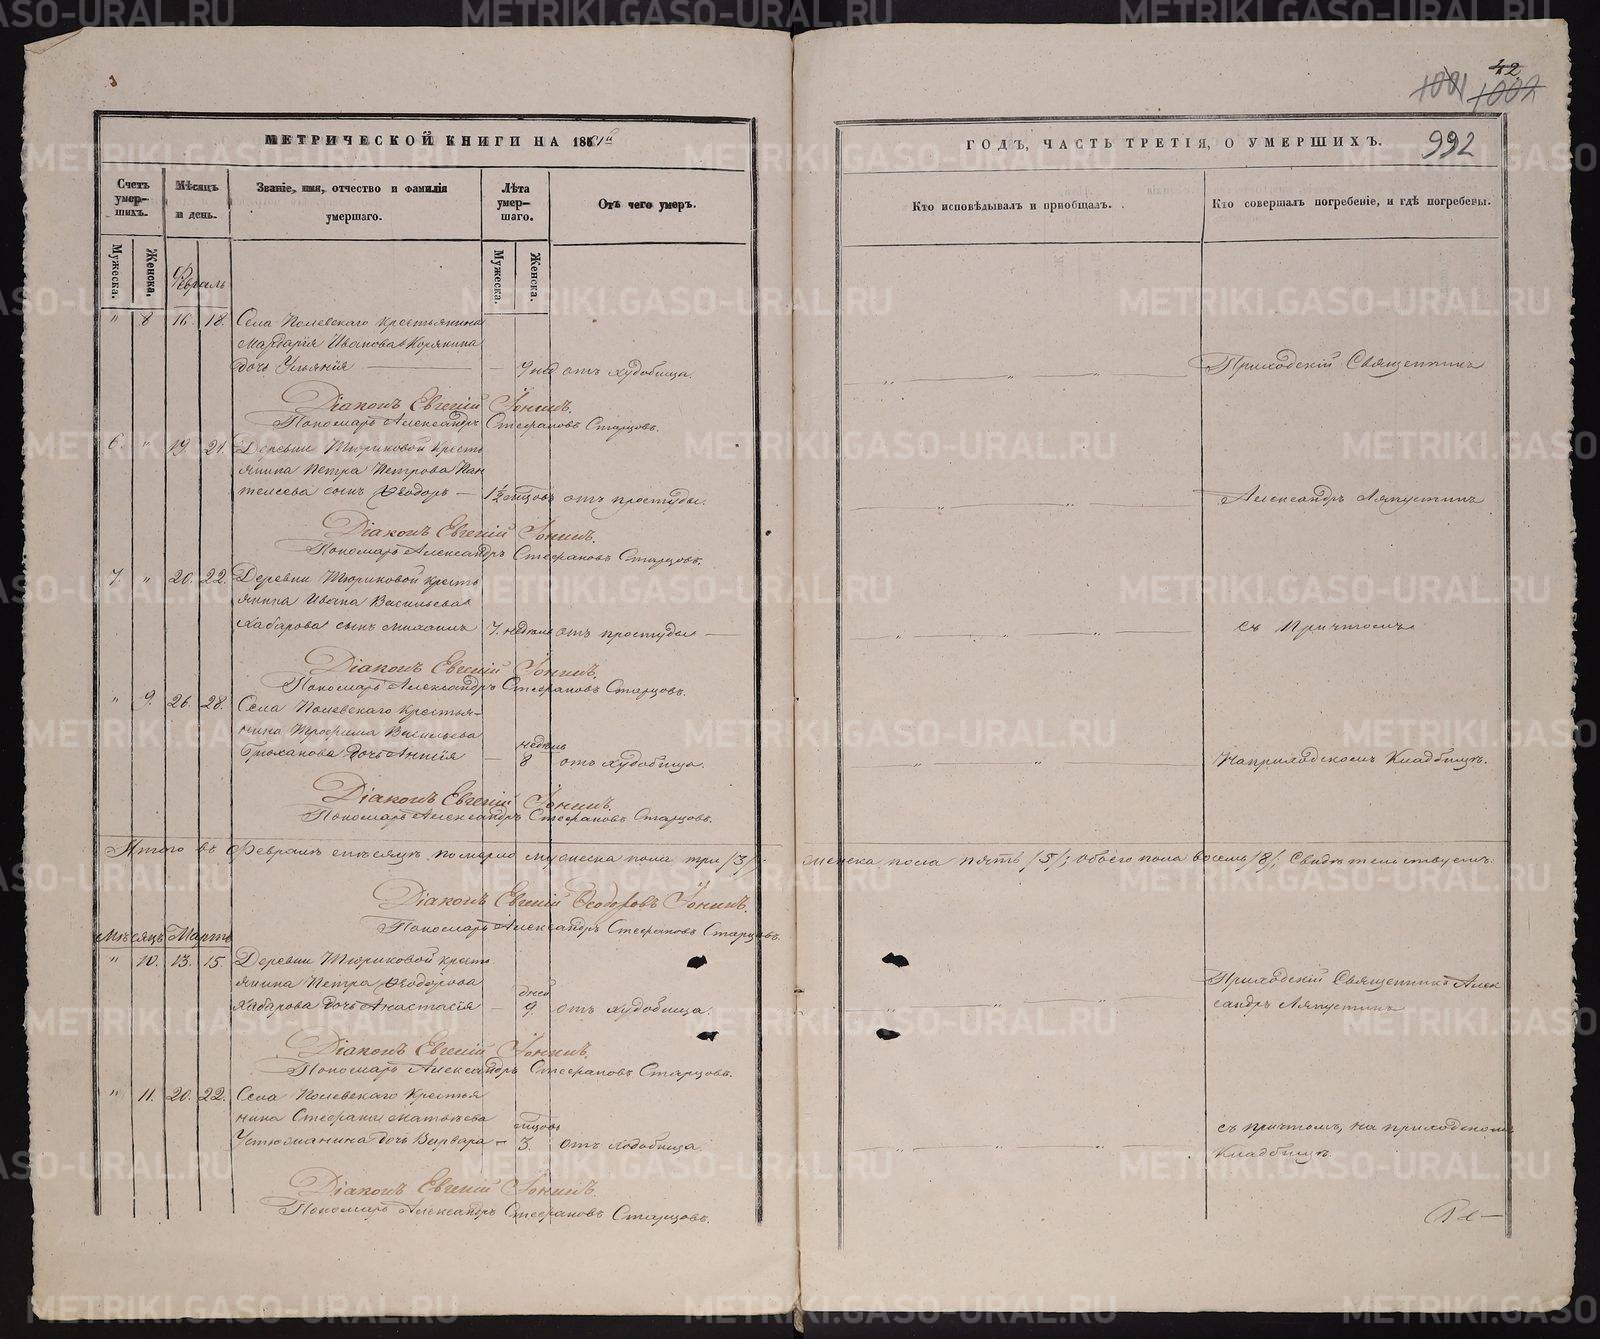 42
1001 1002
МЕТРИЧЕСКОЙ КНИГИ НА 1861й
ГОДЪ, ЧАСТЬ ТРЕТІЯ, О УМЕРШИХЪ.
992
Счетъ умер-шихъ.
Мѣсяцъ и день.
Званіе, имя, отчество и фамилія умершаго.
Лѣта умер-шаго.
Отъ чего умеръ.
Кто исповѣдывалъ и пріобщалъ.
Кто совершалъ погребеніе, и гдѣ погребены.
Мужеска.
Женска.
Мужеска.
Женска.
Февраль
" 8 16. 18. Села Полевскаго крестьянина
Мардарія Иванова Корякина
дочь Ульянія — 9 нед отъ худобища.
Приходскій Священникъ
Діаконъ Евгеній Іонинъ.
Пономарь Александръ Стефановъ Старцовъ.
6. " 19 21. Деревни Тюриковой кресть
янина Петра Петрова Пан
телеева сынъ Ѳеодоръ — 1½ мѣцовъ отъ простуды.
Александръ Ляпустинъ
Діаконъ Евгеній Іонинъ.
Пономарь Александръ Стефановъ Старцовъ.
7. " 20. 22. Деревни Тюриковой кресть
янина Ивана Васильева
Хабарова сынъ Михаилъ 7. недѣль отъ простуды —
съ Причтомъ
Діаконъ Евгеній Іонинъ.
Пономарь Александръ Стефановъ Старцовъ.
" 9. 26. 28. Села Полевскаго Крестья-
нина Трофима Васильева
недѣль
дочь Аннія — 8 отъ худобища.
На приходскомъ Кладбищѣ.
Діаконъ Евгеній Іонинъ.
Пономарь Александръ Стефановъ Старцовъ.
Итого въ Февралѣ мѣсяцѣ померло мужеска пола три /3/. женска пола пять /5/; обоего пола восемь /8/, Свидѣтельствуемъ.
Діаконъ Евгеній Ѳеодоровъ Іонинъ.
Пономарь Александръ Стефановъ Старцовъ.
Мѣсяцъ Мартъ
" 10. 13. 15. Деревни Тюриковой кресть
янина Петра Ѳеодорова
дней
Хабарова дочь Анастасія — 9. отъ худобища.
Приходскій Священникъ Алек
сандръ Ляпустинъ
Діаконъ Евгеній Іонинъ.
Пономарь Александръ Стефановъ Старцовъ.
" 11. 20. 22. Села Полевскаго Крестья
нина Стефана Матвѣева
мѣцовъ
Устюжанина дочь Варвара — 3. отъ худобища.
съ причтомъ, на приходскомъ
Кладбищѣ.
Діаконъ Евгеній Іонинъ.
Пономарь Александръ Стефановъ Старцовъ.
METRIKI.GASO-URAL.RU